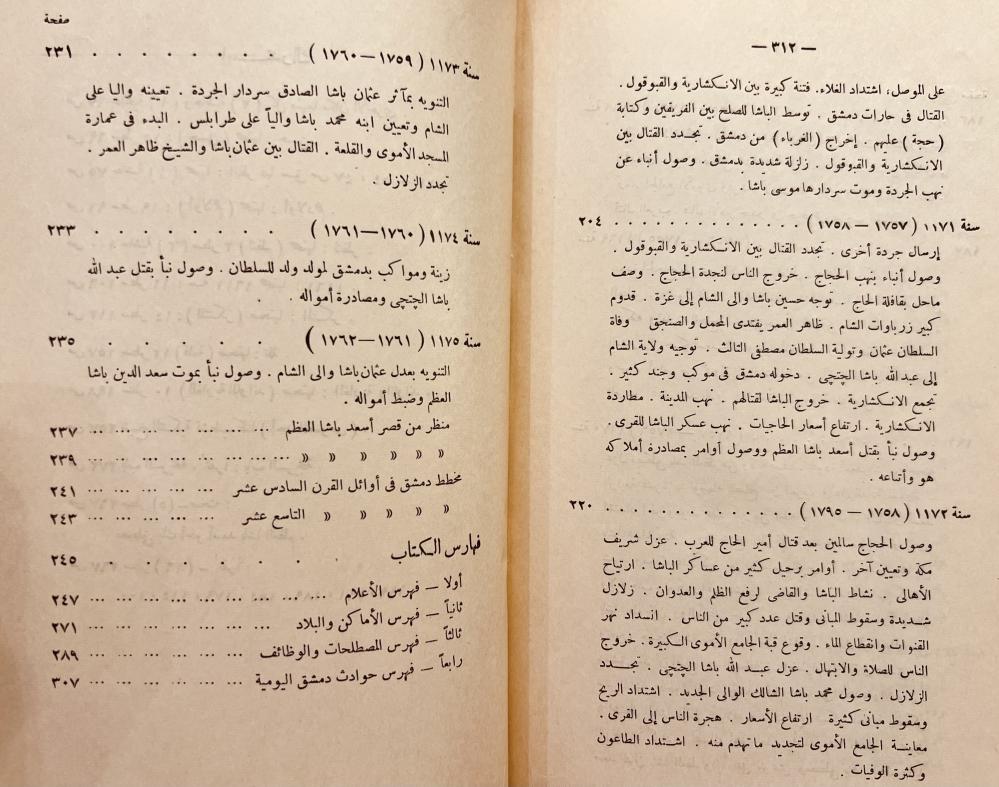 — ٣١٢ —
على الموصل، اشتداد الغلاء. فتنة كبيرة بين الانكشارية والقبوقول.
القتال فى حارات دمشق. توسط الباشا للصلح بين الفريقين وكتابة
(حجة) عليهم. إخراج (الغرباء) من دمشق. تجدد القتال بين
الانكشارية والقبوقول. زلزلة شديدة بدمشق. وصول أنباء عن
نهب الجردة وموت سردارها موسى باشا.
سنة ١١٧١ (١٧٥٧ — ١٧٥٨) . . . . . . . . . . . . ٢٠٤
إرسال جردة أخرى. تجدد القتال بين الانكشارية والقبوقول.
وصول أنباء بنهب الحجاج. خروج الناس لنجدة الحجاج. وصف
ماحل بقافلة الحاج. توجه حسين باشا والى الشام إلى غزة. قدوم
كبير زرباوات الشام. ظاهر العمر يفتدى المحمل والصنجق وفاة
السلطان عثمان وتولية السلطان مصطفى الثالث. توجيه ولاية الشام
إلى عبد الله باشا الچتچى. دخوله دمشق فى موكب وجند كثير.
تجمع الانكشارية. خروج الباشا لقتالهم. نهب المدينة. مطاردة
الانكشارية. ارتفاع أسعار الحاجيات. نهب عسكر الباشا للقرى.
وصول نبأ بقتل أسعد باشا العظم ووصول أوامر بمصادرة أملاكه
هو وأتناعه.
سنة ١١٧٢ (١٧٥٨ — ١٧٩٥) . . . . . . . . . . . . . ٢٢٠
وصول الحجاج سالمين بعد قتال أمير الحاج للعرب. عزل شريف
مكة وتعيين آخر. أوامر برحيل كثير من عساكر الباشا. ارتياح
الأهالى. نشاط الباشا والقاضى لرفع الظلم والعدوان. زلازل
شديدة وسقوط المبانى وقتل عدد كبير من الناس. انسداد نهر
القنوات وانقطاع الماء. وقوع قبة الجامع الأموى الكبيرة. خروج
الناس للصلاة والابتهال. عزل عبد الله باشا الچتچى. تجدد
الزلازل. وصول محمد باشا الشالك الوالى الجديد. اشتداد الريح
وسقوط مبانى كثيرة ارتفاع الأسعار. هجرة الناس إلى القرى.
معاينة الجامع الأموى لتجديد ماتهدم منه. اشتداد الطاعون
وكثرة الوفيات.
صفحة
سنة ١١٧٣ (١٧٥٩—١٧٦٠) . . . . . . . . ٢٣١
التنويه بمآثر عثمان باشا الصادق سردار الجردة. تعيينه واليا على
الشام وتعيين ابنه محمد باشا والياً على طرابلس. البدء فى عمارة
المسجد الأموى والقلعة. القتال بين عثمان باشا والشيخ ظاهر العمر.
تجدد الزلازل.
سنة ١١٧٤ (١٧٦٠—١٧٦١) . . . . . . . . ٢٣٣
زينة ومواكب بدمشق لمولد ولد للسلطان. وصول نبأ بقتل عبد الله
باشا الچتچى ومصادرة أمواله.
سنة ١١٧٥ (١٧٦١—١٧٦٢) . . . . . . ٢٣٥
التنويه بعدل عثمان باشا والى الشام. وصول نبأ بموت سعد الدين باشا
العظم وضبط أمواله.
منظر من قصر أسعد باشا العظم ... ... ... ... ... ... ٢٣٧
» » » » » » ... ... ... ... ... ... ٢٣٩
مخطط دمشق فى أوائل القرن السادس عشر ... ... ... ... ٢٤١
» » » » » التاسع عشر ... ... ... ... ٢٤٣
فهارس الكتاب . . . . . . . ٢٤٥
أولا — فهرس الأعلام ... ... ... ... ... ... ... ٢٤٧
ثانياً — فهرس الأماكن والبلاد ... ... ... ... ... ... ٢٧١
ثالثاً — فهرس المصطلحات والوظائف ... ... ... ... ... ٢٨٩
رابعاً — فهرس حوادث دمشق اليومية ... ... ... ... ... ٣٠٧